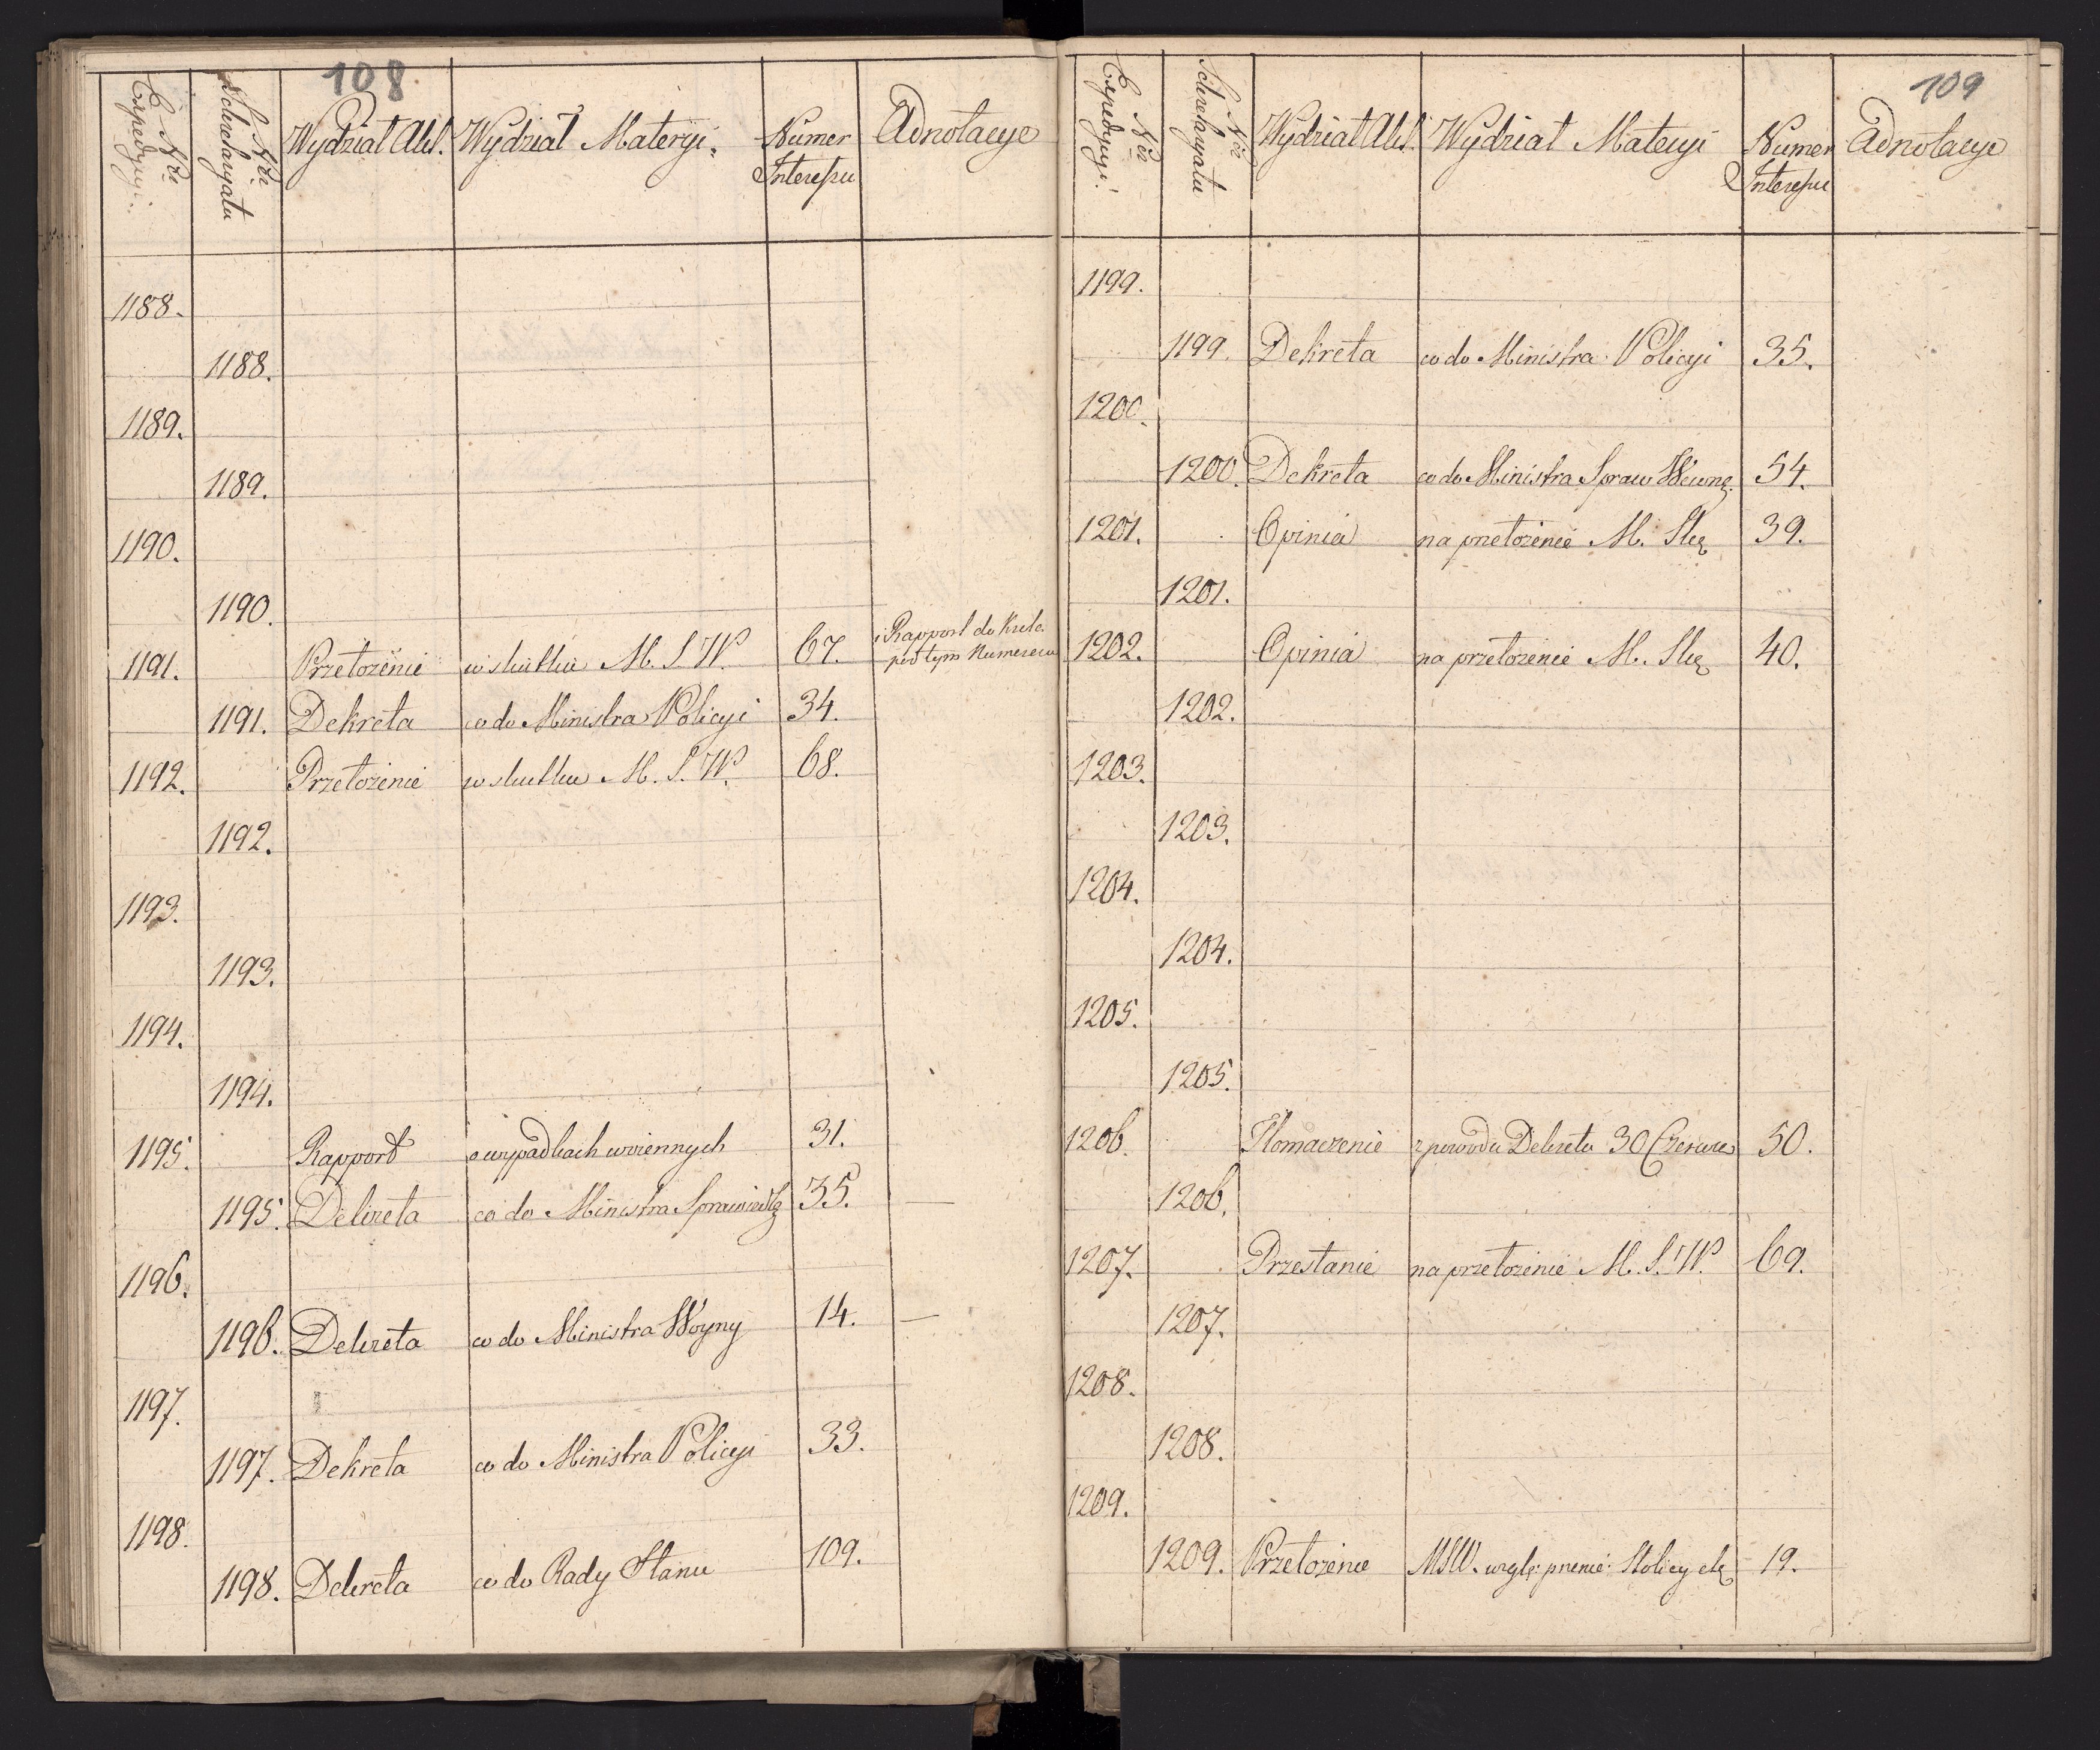 108
Nro Expedycyi
Nro Sekretaryatu
Wydział Akt. Wydział Materyi. Numer Interesu Adnotacye
1188.
1188.
1189.
1189.
1190.
1190.
1191. Przełożenie w skutku M. S. W. 67. i Rapport do Króla
pod tym Numerem
1191. Dekreta co do Ministra Policyi 34.
1192. Przełożenie w skutku M. S. W. 68.
1192.
1193.
1193.
1194.
1194.
1195. Rapport o wypadkach woiennych 31.
1195. Dekreta co do Ministra Sprawiedlg 35. —
1196.
1196. Dekreta co do Ministra Woyny 14. —
1197.
1197. Dekreta co do Ministra Policyi 33.
1198.
1198. Dekreta co do Rady Stanu 109.
109
Nro Expedycyi.
Nro Sekretaryatu
Wydział Akt. Wydział Materyi Numer Interesu Adnotacye
1199.
1199. Dekreta co do Ministra Policyi 35.
1200.
1200. Dekreta co do Ministra Spraw Wewnę. 54.
1201. Opinia na przełożenie M. 39.
1201.
1202. Opinia na przełożenie M. 40.
1202.
1203.
1203.
1204.
1204.
1205.
1205.
1206. Tłomaczenie z powodu Dekretu 30 Czerwca 50.
1206.
1207. Przesłanie na przełożenie M. S. W. 69.
1207.
1208.
1208.
1209.
1209. Przełożenie MSW. wzglę: Stolicy 19.